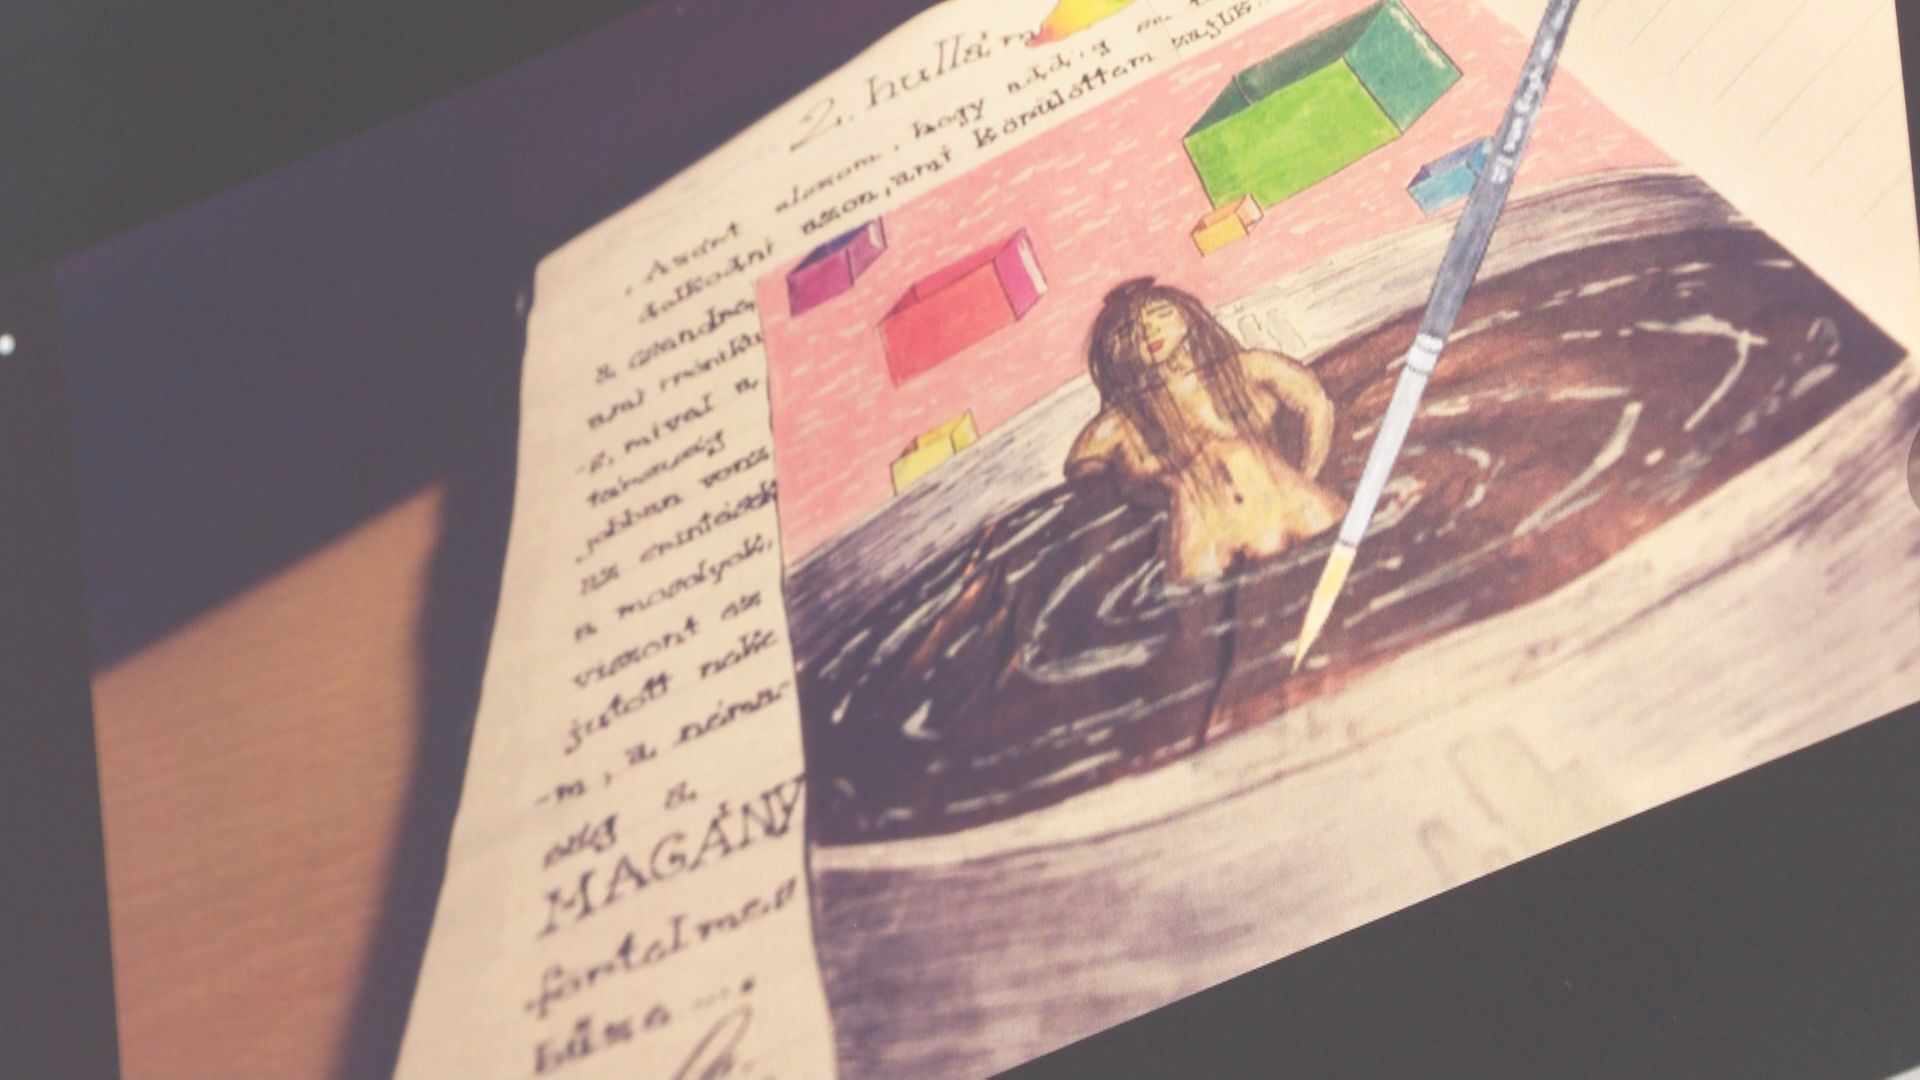 2. hullám
Azért alszom, hogy addig se
dalkodni azon, ami körülöttem zajlik.
a csendre,
ami
-2, mivel a
jobban vonz
az érintések
a mosolyok,
viszont ez
jutott neke
-m, a néma-
ság a
MAGÁNY
fertelmes
bűze ...